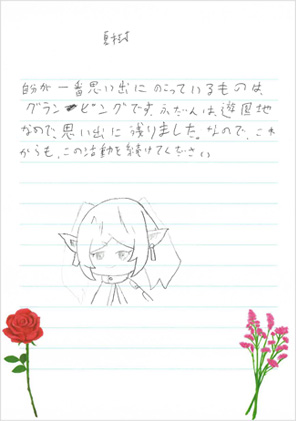 夏樹
自分が一番思い出にのこっているものは、
グランピングです。ふだんは、遊園地
なので、思い出に残りました。なので、これ
からも、この活動を続けてください